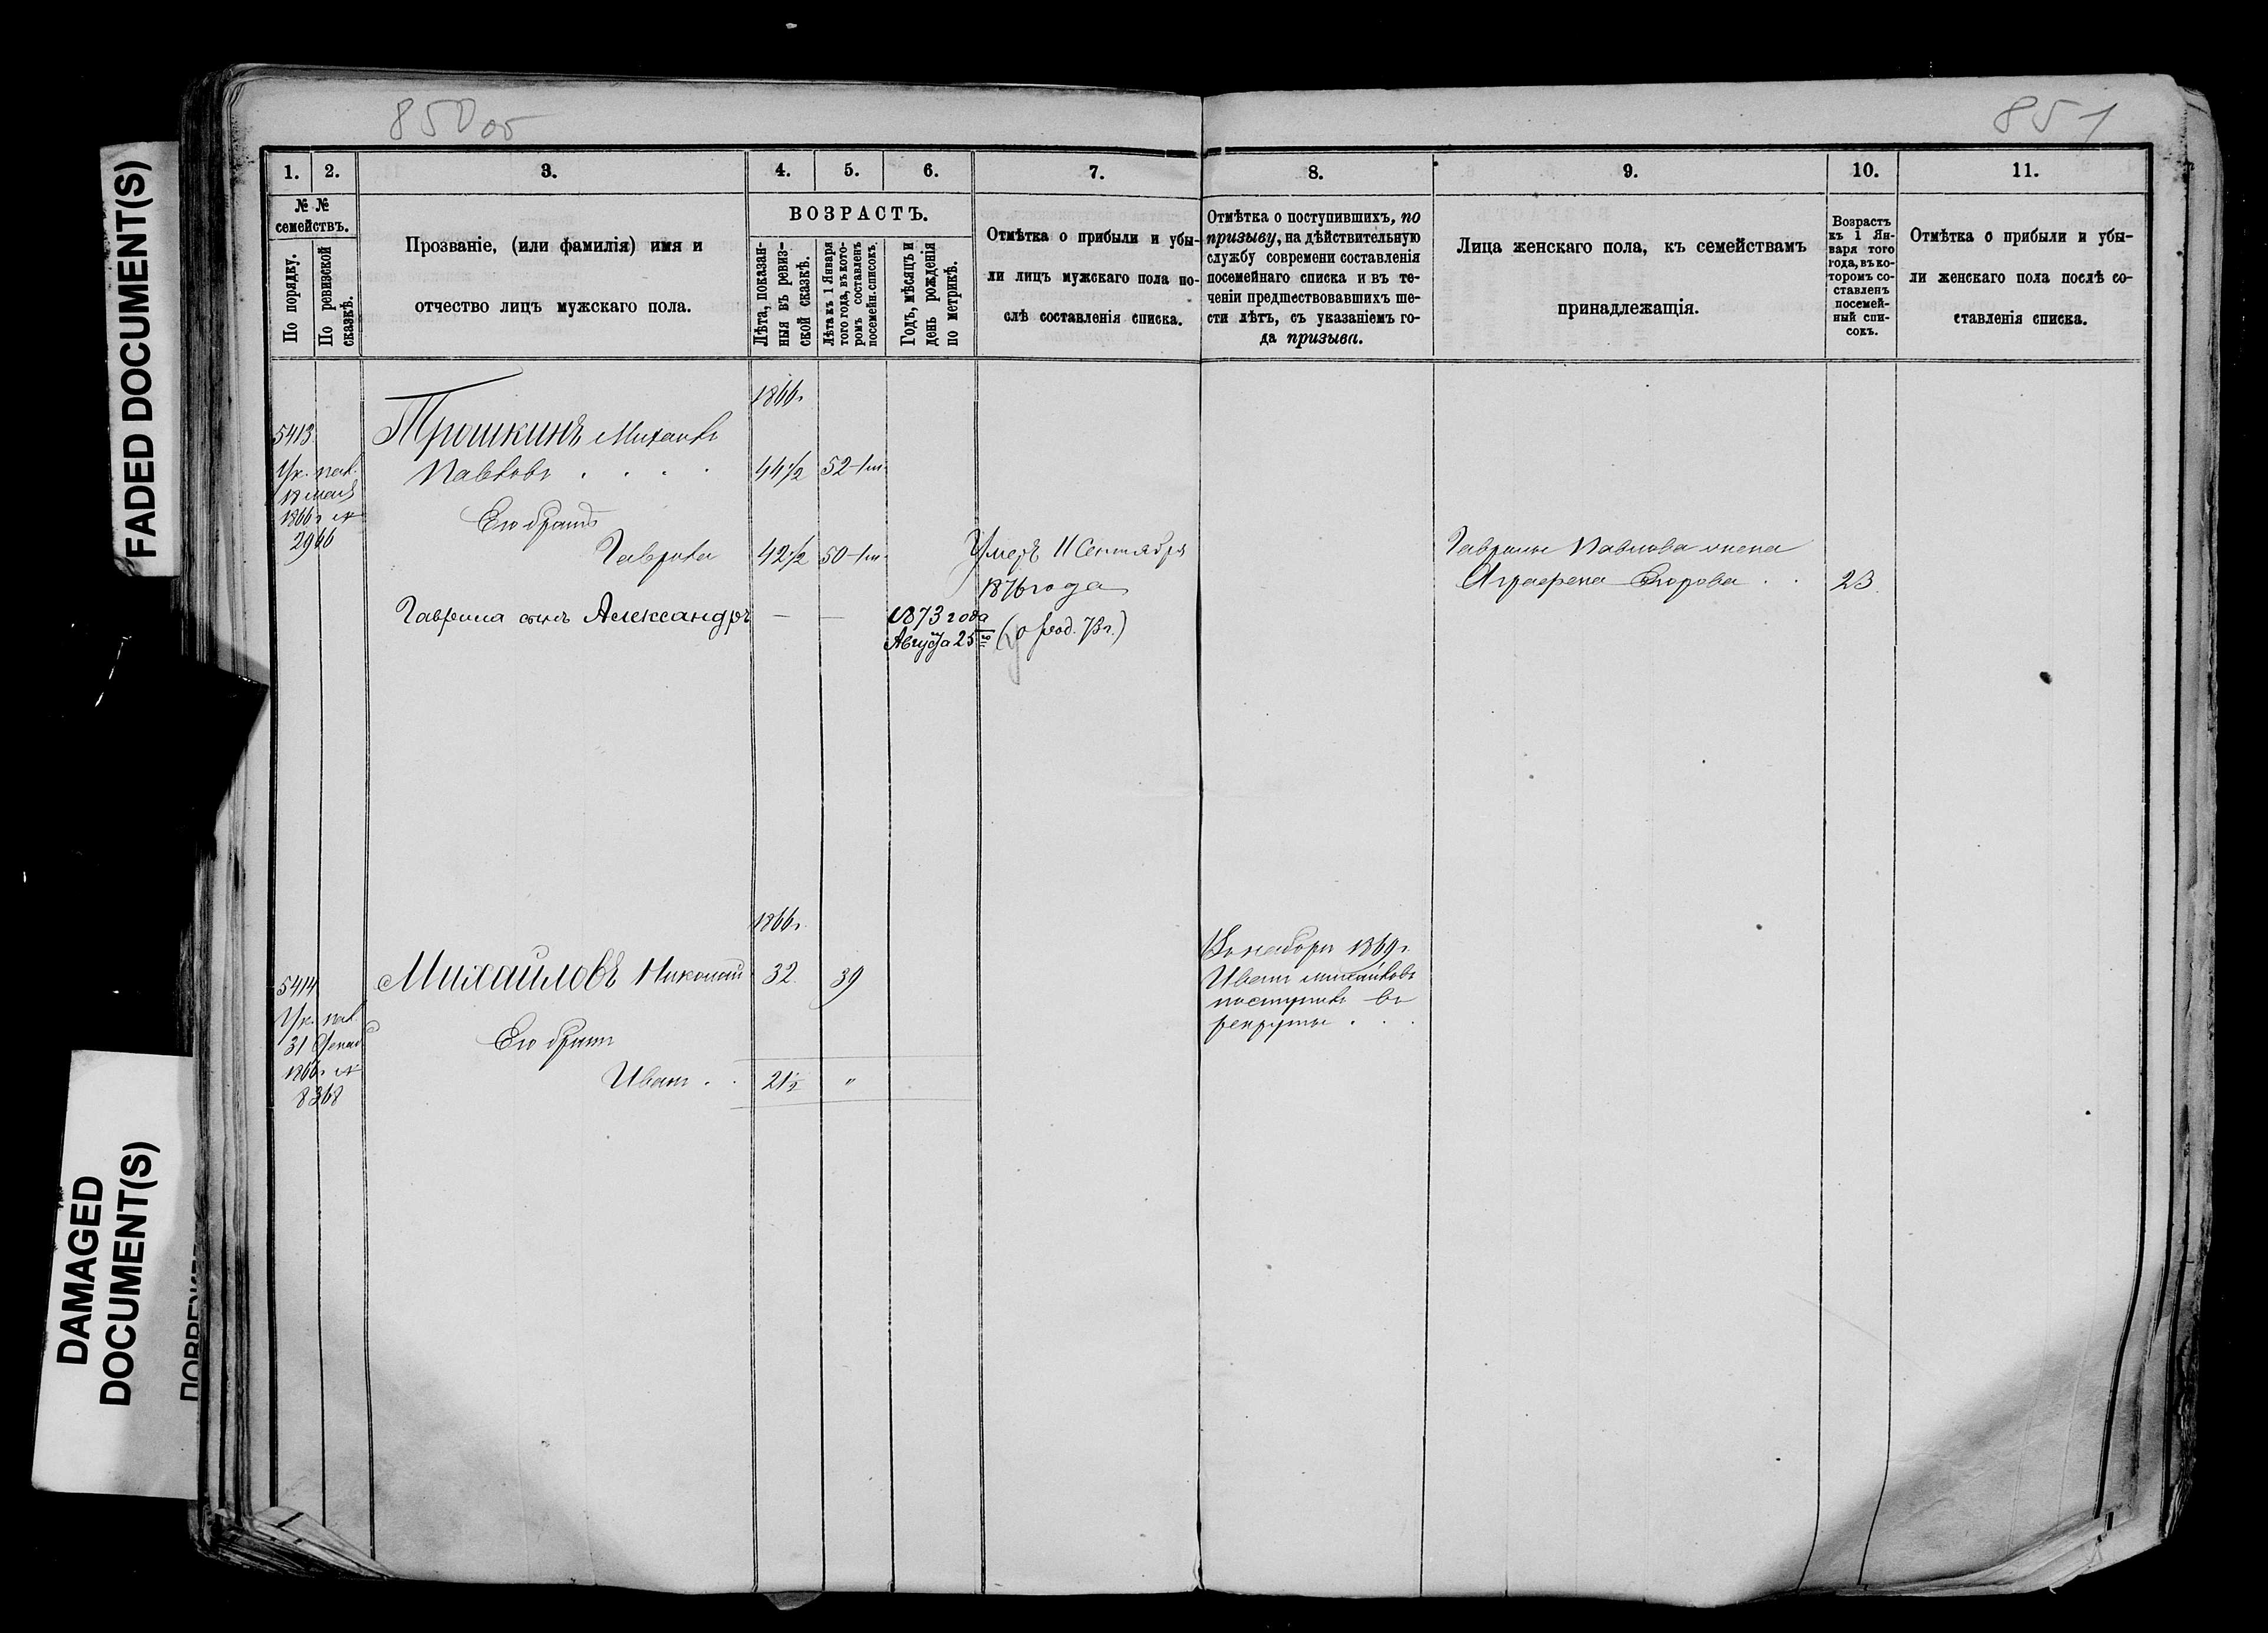 850 об
851
FADED DOCUMENT(S)
DAMAGED
DOCUMENT(S)
1.
2.
3.
4.
5.
6.
7.
8.
9.
10.
11.
№ №
семействъ.
По порядку.
По ревизской
сказкѣ.
Прозваніе, (или фамилія) имя и
отчество лицъ мужскаго пола.
ВОЗРАСТЪ.
Лѣта, показан-
ныя въ ревиз-
ской сказкѣ.
Лѣта къ 1 Января
того года, въ кото-
ромъ составленъ
посемейн. списокъ.
Годъ, мѣсяцъ и
день рожденія
по метрикѣ.
Отмѣтка о прибыли и убы-
ли лицъ мужскаго пола по-
слѣ составленія списка.
Отмѣтка о поступившихъ, по
призыву, на дѣйствительную
службу современи составленія
посемейнаго списка и въ те-
ченіи предшествовавшихъ ше-
сти лѣтъ, съ указаніемъ го-
да призыва.
Лица женскаго пола, къ семействамъ
принадлежащія.
Возрастъ
къ 1 Ян-
варя того
года, въ ко-
торомъ со-
ставленъ
посемей-
ный спи-
сокъ.
Отмѣтка о прибыли и убы-
ли женскаго пола послѣ со-
ставленія списка.
1866г
5413
Трошкинъ Михаилъ
Ук. пал.
Павловъ . . . . 44½ 52
18 мая
1866г №
2966
Его братъ
Гаврила 42½ 50
Умеръ 11 Сентября
1876 года
Гаврилы Павлова жена
Аграфена Егорова . . 23.
Гаврила сынъ Александръ — —
1873 года
Августа 25го
1866г.
5414
Михайловъ Николай 32. 39
Ук. пал.
31
1866г №
8368
Его братъ
Иванъ . . 21½ "
Въ наборъ 1869г.
Иванъ Михайловъ
поступилъ въ
рекруты . . .